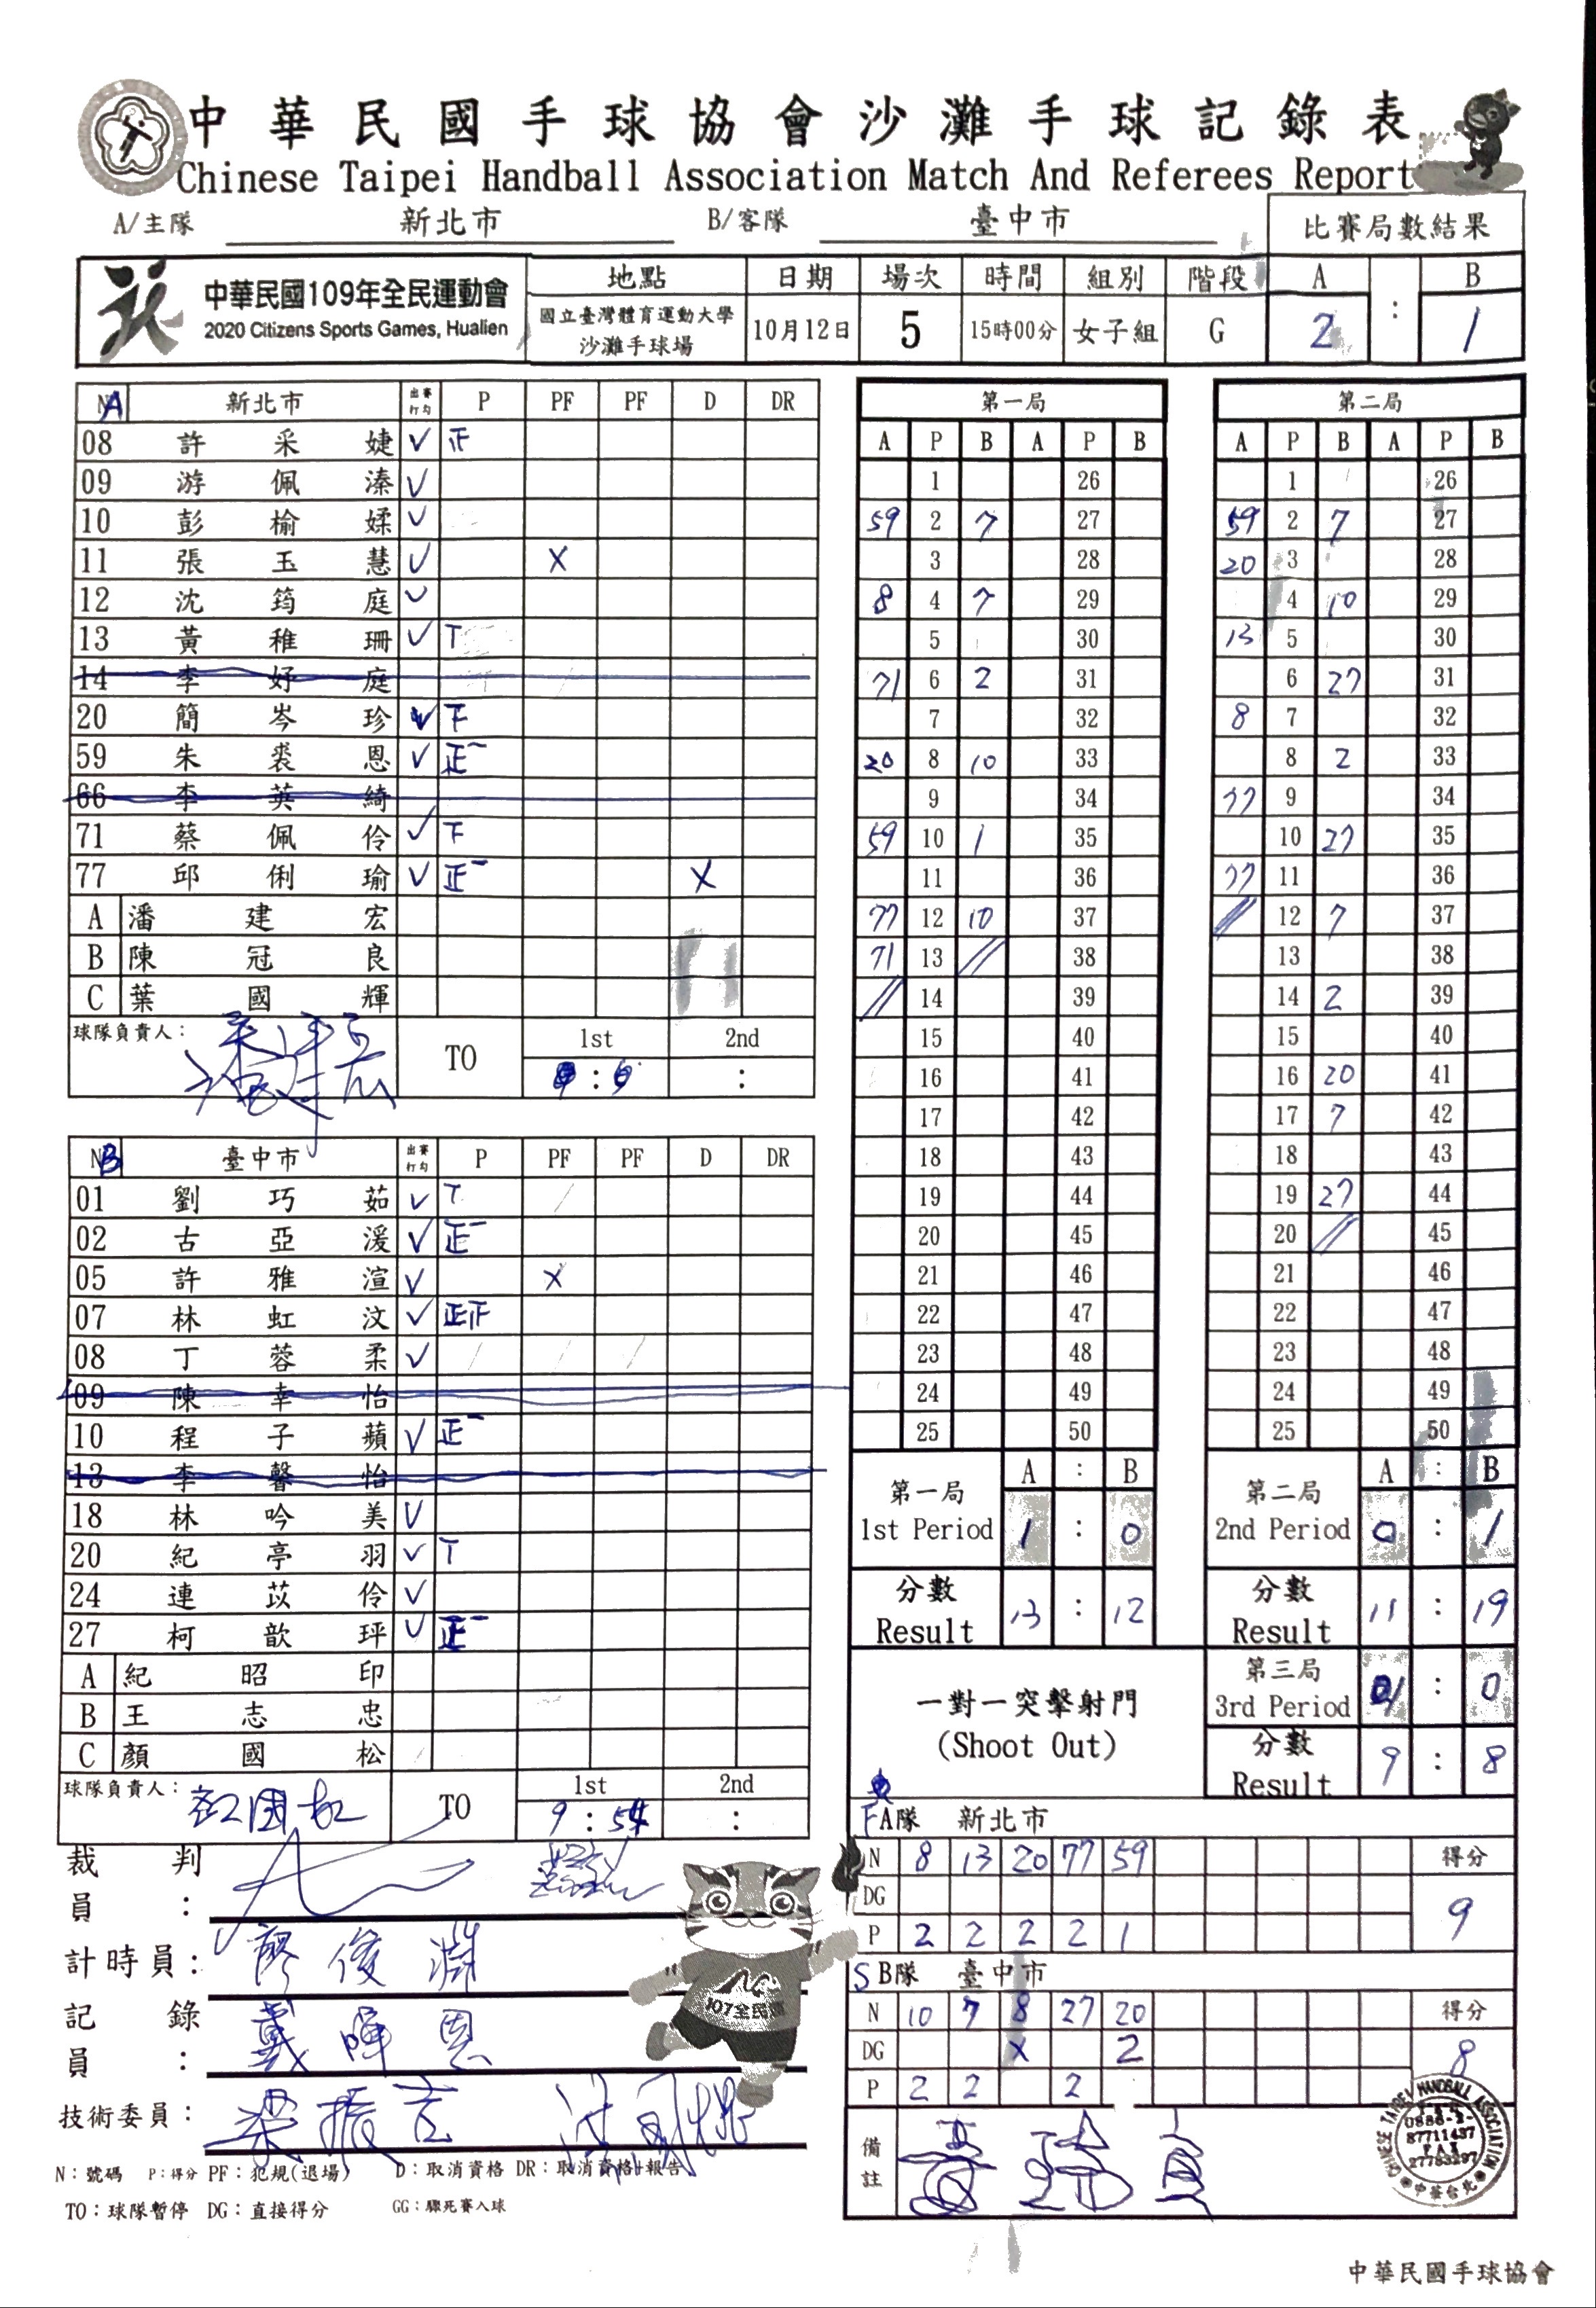 中華民國手球協會沙灘手球記錄表
Chinese Taipei Handball Association Match And Referees Report
A/主隊 新北市 B/客隊 臺中市 比賽局數結果
中華民國109年全民運動會 地點 日期 場次 時間 組別 階段 A : B
2020 Citizens Sports Games, Hualien 國立臺灣體育運動大學 沙灘手球場 10月12日 5 15時00分 女子組 G 2 1
A 新北市 出賽打勾 P PF PF D DR
08 許采婕 V 正
09 游佩溱 V
10 彭榆媃 V
11 張玉慧 V X
12 沈筠庭 V
13 黃稚珊 V T
14 李妤庭
20 簡岑珍 V 下
59 朱裘恩 V 正一
66 李英綺
71 蔡佩伶 V 下
77 邱俐瑜 V 正一 X
A 潘建宏
B 陳冠良
C 葉國輝
球隊負責人: TO 1st 2nd
: :
B 臺中市 出賽打勾 P PF PF D DR
01 劉巧茹 V T
02 古亞湲 V 正一
05 許雅渲 V X
07 林虹汶 V 正正
08 丁蓉柔 V
09 陳幸怡
10 程子蘋 V 正一
13 李馨怡
18 林吟美 V
20 紀亭羽 V T
24 連苡伶 V
27 柯歆玶 V 正一
A 紀昭印
B 王志忠
C 顏國松
球隊負責人: TO 1st 2nd
9 : 54 :
裁判員:
計時員: 廖俊淵
記錄員: 戴暐恩
技術委員: 梁振言
N：號碼 P：得分 PF：犯規(退場) D：取消資格 DR：取消資格+報告
TO：球隊暫停 DG：直接得分 GG：驟死賽入球
107全民運
第一局
A P B A P B
1 26
59 2 7 27
3 28
8 4 7 29
5 30
71 6 2 31
7 32
20 8 10 33
9 34
59 10 1 35
11 36
77 12 10 37
71 13 // 38
// 14 39
15 40
16 41
17 42
18 43
19 44
20 45
21 46
22 47
23 48
24 49
25 50
第一局 A : B
1st Period 1 : 0
分數
Result 13 : 12
第二局
A P B A P B
1 26
59 2 7 27
20 3 28
4 10 29
13 5 30
6 27 31
8 7 32
8 2 33
77 9 34
10 27 35
77 11 36
// 12 7 37
13 38
14 2 39
15 40
16 20 41
17 7 42
18 43
19 27 44
20 // 45
21 46
22 47
23 48
24 49
25 50
第二局 A : B
2nd Period 0 : 1
分數
Result 11 : 19
一對一突擊射門
(Shoot Out)
第三局
3rd Period 1 : 0
分數
Result 9 : 8
F A隊 新北市
N 8 13 20 77 59 得分
DG 9
P 2 2 2 2 1
S B隊 臺中市
N 10 7 8 27 20 得分
DG X 2 8
P 2 2 2
備註
CHINESE TAIPEI HANDBALL ASSOCIATION
0886-2-
87711437
FAX
27783297
中華台北
中華民國手球協會